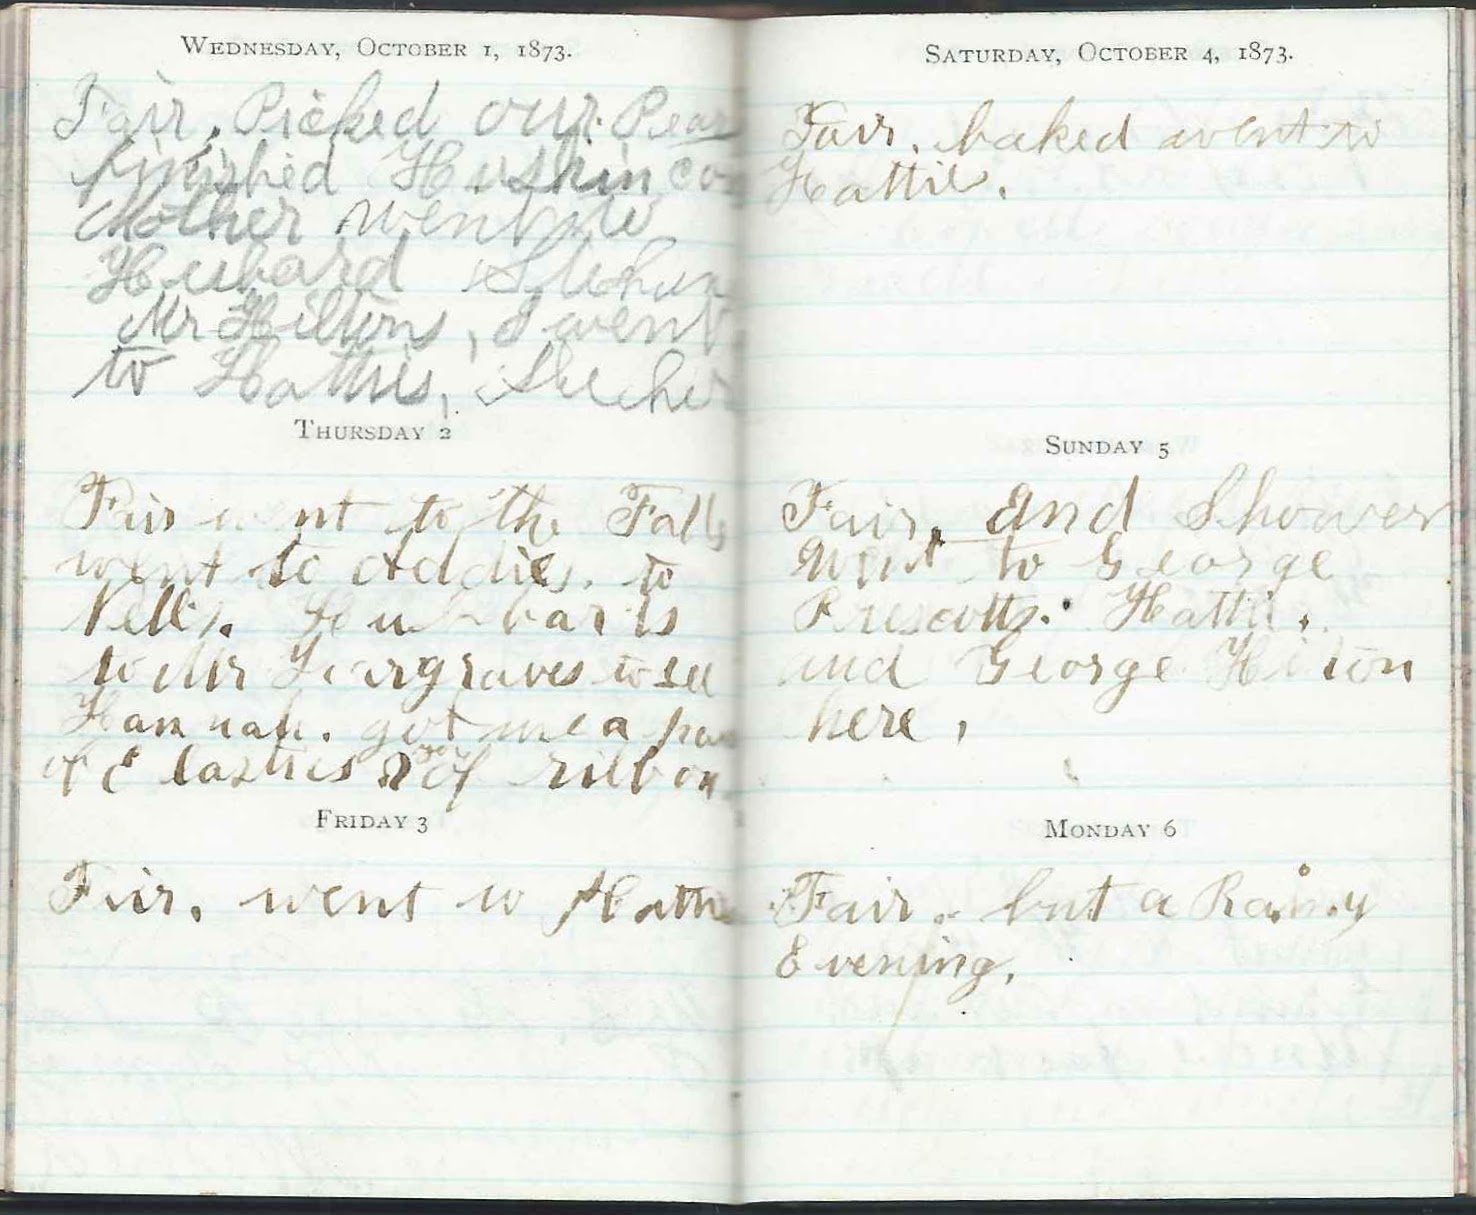 WEDNESDAY, OCTOBER 1, 1873.
Fair, Picked our Pears
finished Huskin co
Mother went to
Hubard
Mr Hiltons, I went
to Hatties,
THURSDAY 2
Fair went to the Falls
went to Addies. to
Nellis. Hubbards
to Mr Hargraves to see
Hannah. got me a pair
of Elastics & of ribbon
FRIDAY 3
Fair. went to Hattie
SATURDAY, OCTOBER 4, 1873.
Fair. baked went to
Hatties.
SUNDAY 5
Fair, and Shower
Went to George
Prescotts. Hattie,
and George Hilton
here,
MONDAY 6
Fair. but a Rainy
Evening.